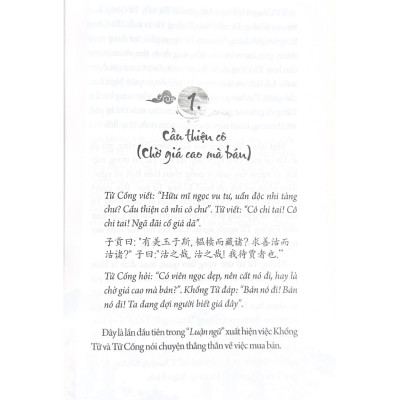 1.
Cầu thiện cô
(Chờ giá cao mà bán)
Tử Cống viết: "Hữu mĩ ngọc vu tư, uẩn độc nhi tàng
chư? Cầu thiện cô nhi cô chư". Tử viết: "Cô chi tai! Cô
chi tai! Ngã đãi cổ giả dã".
子贡曰:"有美玉于斯, 韫椟而藏诸? 求善沽而
沽诸?" 子曰:"沽之哉, 沽之哉! 我待贾者也."
Tử Cống hỏi: "Có viên ngọc đẹp, nên cất nó đi, hay là
chờ giá cao mà bán?". Khổng Tử đáp: "Bán nó đi! Bán
nó đi! Ta đang đợi người biết giá đây".
Đây là lần đầu tiên trong "Luận ngữ" xuất hiện việc Khổng
Tử và Tử Cống nói chuyện thẳng thắn về việc mua bán.